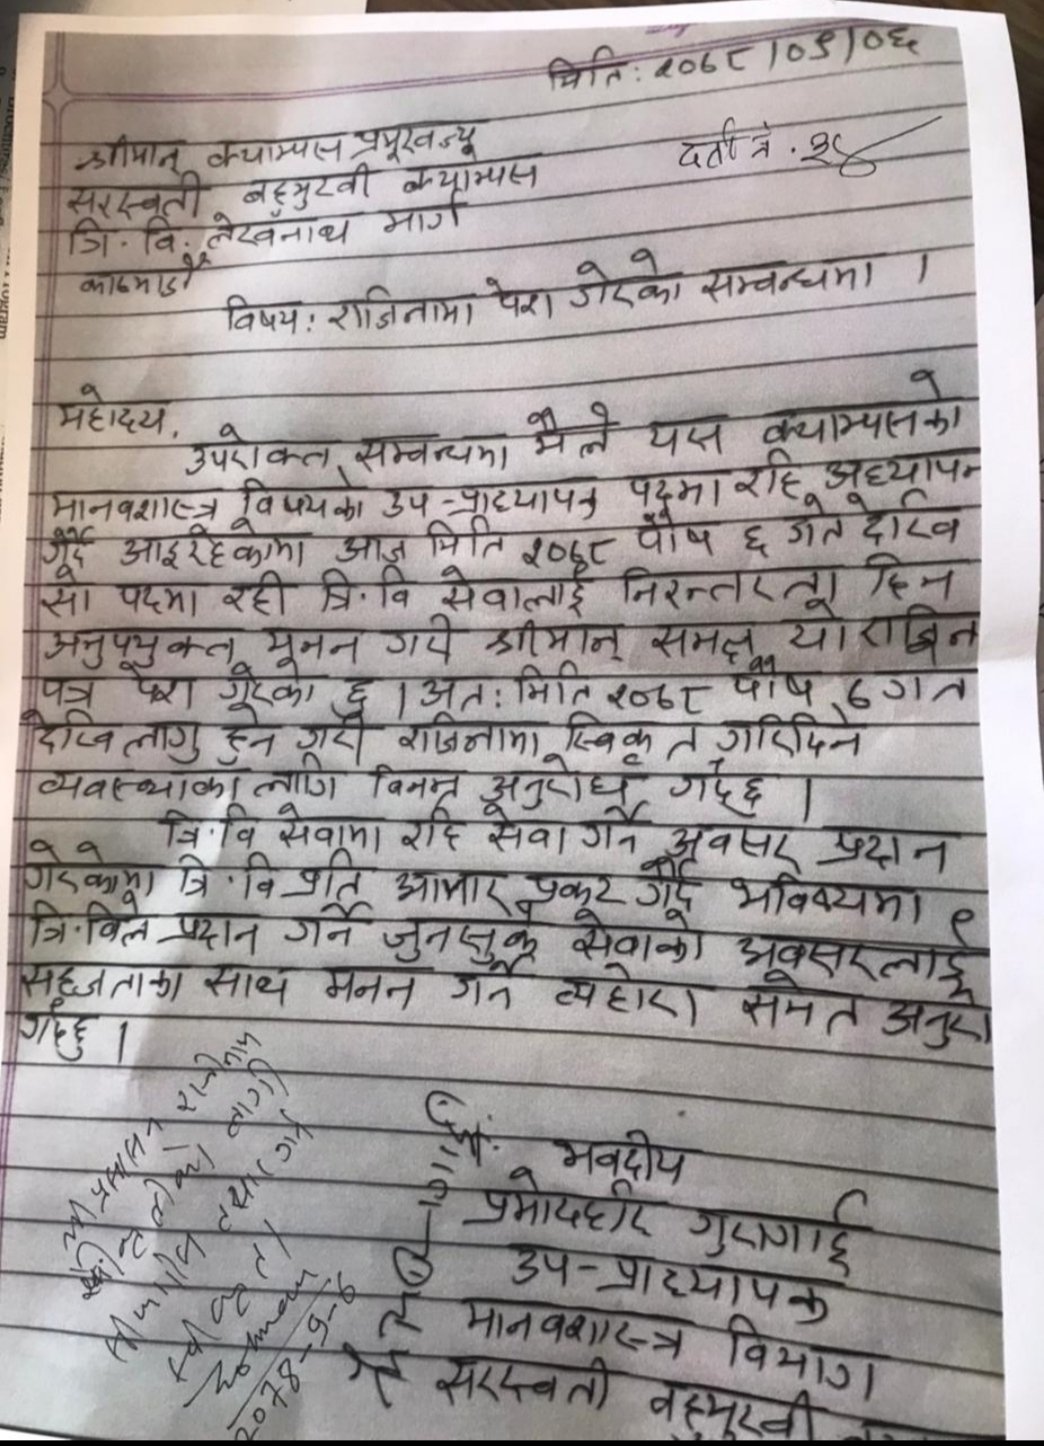 मिति: २०७८/०९/०६
दर्ता नं. २४
श्रीमान् क्याम्पस प्रमूखज्यू
सरस्वती बहुमुखी क्याम्पस
त्रि. वि. लेखनाथ मार्ग
काठमाडौं
विषय: राजिनामा पेश गरेको सम्वन्धमा ।
महोदय,
उपरोक्त सम्वन्धमा मैले यस क्याम्पसको
मानवशास्त्र विषयको उप-प्राध्यापक पदमा रहि अध्यापन
गर्दै आइरहेकोमा आज मिति २०७८ पौष ६ गते देखि
सो पदमा रही त्रि.वि सेवालाई निरन्तरता दिन
अनुपयुक्त मनन गरी श्रीमान् समक्ष यो राजिन
पत्र पेश गरेको छु । अत: मिति २०७८ पौष ७ गते
देखि लागु हुने गरी राजिनामा स्विकृत गरिदिने
व्यवस्थाका लागि विनम्र अनुरोध गर्दछु ।
त्रि.वि सेवामा रहि सेवा गर्ने अवसर प्रदान
गरेकोमा त्रि.वि प्रति आभार प्रकट गर्दै भविष्यमा
त्रि.विले प्रदान गर्ने जुनसुकै सेवाको अवसरलाई
सहजताका साथ मनन गर्ने व्यहोरा समेत अनुरो
गर्दछु ।
भवदीय
प्रमोदहरि गुरागाई
उप-प्राध्यापक
मानवशास्त्र विभाग
सरस्वती बहुमुखी
श्री प्रशासन राजीनामा
लागी
तयार गर्न
2078-9-6